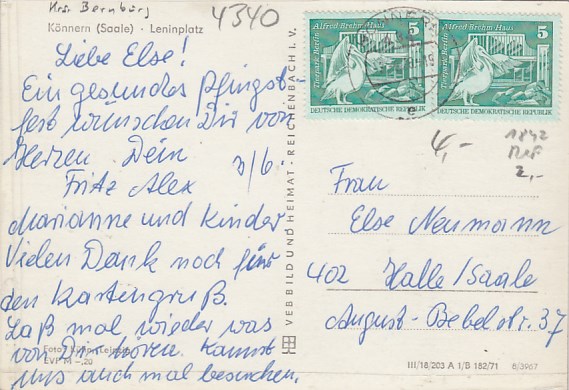 Krs. Bernburg
4340
Könnern (Saale) - Leninplatz
Liebe Else!
Ein gesundes Pfingst-
fest wünschen Dir von
Herzen Dein 3/6-
Fritz Alex
Marianne und Kinder
Vielen Dank noch für
den Kartengruß.
Laß mal wieder was
von Dir hören. Kannst
uns auch mal besuchen.
EVP M -,20
VEB BILD UND HEIMAT · REICHENBACH I. V.
Alfred-Brehm-Haus 5
Tierpark Berlin
DEUTSCHE DEMOKRATISCHE REPUBLIK
Alfred-Brehm-Haus 5
Tierpark Berlin
DEUTSCHE DEMOKRATISCHE REPUBLIK
e
4,-
1842
2,-
Frau
Else Neumann
402 Halle/Saale
August-Bebelstr. 37
III/18/203 A 1/B 182/71 6/3967